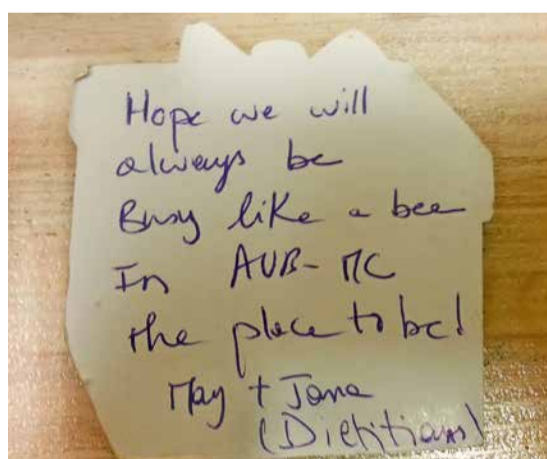 Hope we will
always be
Busy like a bee
In AUB-MC
the place to be!
May + Jana
(Dietitians)